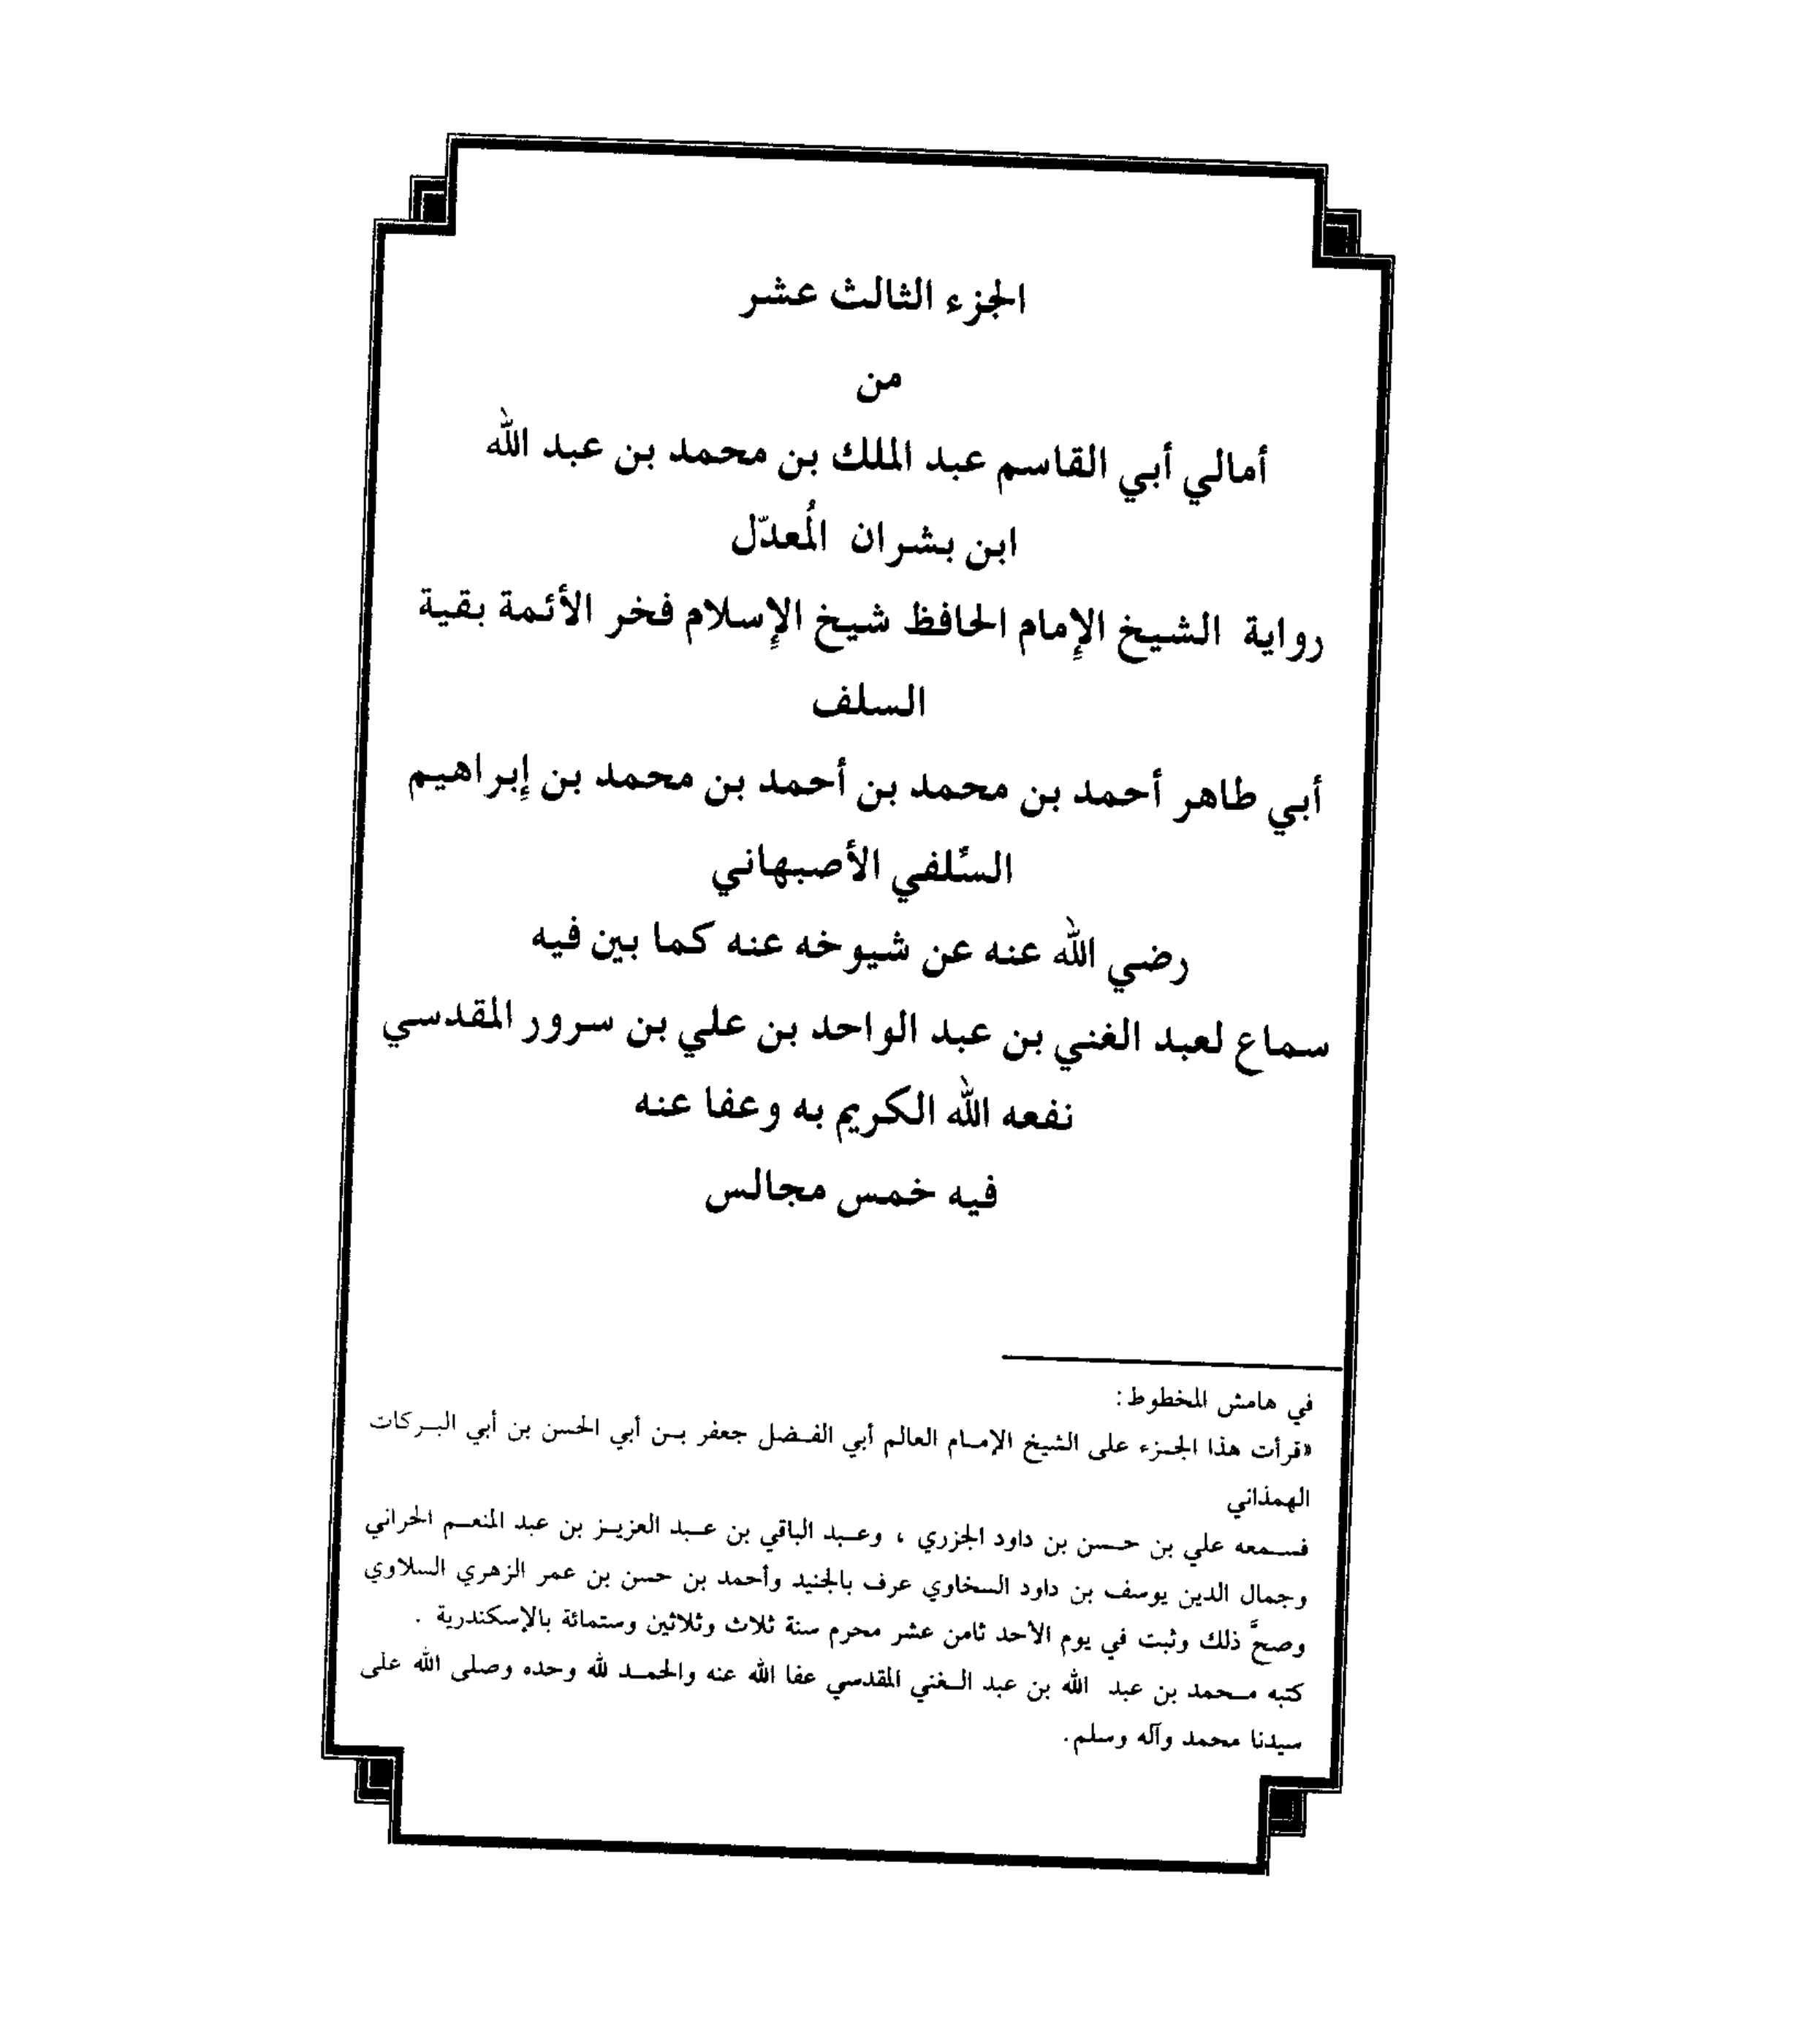 الجزء الثالث عشر
من
أمالي أبي القاسم عبد الملك بن محمد بن عبد الله
ابن بشران المُعدّل
رواية الشيخ الإِمام الحافظ شيخ الإِسلام فخر الأئمة بقية
السلف
أبي طاهر أحمد بن محمد بن أحمد بن محمد بن إِبراهيم
السِّلفي الأصبهاني
رضي الله عنه عن شيوخه عنه كما بين فيه
سماع لعبد الغني بن عبد الواحد بن علي بن سرور المقدسي
نفعه الله الكريم به وعفا عنه
فيه خمس مجالس
في هامش المخطوط:
«قرأت هذا الجزء على الشيخ الإمام العالم أبي الفضل جعفر بن أبي الحسن بن أبي البركات
الهمذاني
فسمعه علي بن حسن بن داود الجزري ، وعبد الباقي بن عبد العزيز بن عبد المنعم الحراني
وجمال الدين يوسف بن داود السخاوي عرف بالجنيد وأحمد بن حسن بن عمر الزهري السلاوي
وصحَّ ذلك وثبت في يوم الأحد ثامن عشر محرم سنة ثلاث وثلاثين وستمائة بالإسكندرية .
كتبه محمد بن عبد الله بن عبد الغني المقدسي عفا الله عنه والحمد لله وحده وصلى الله على
سيدنا محمد وآله وسلم.